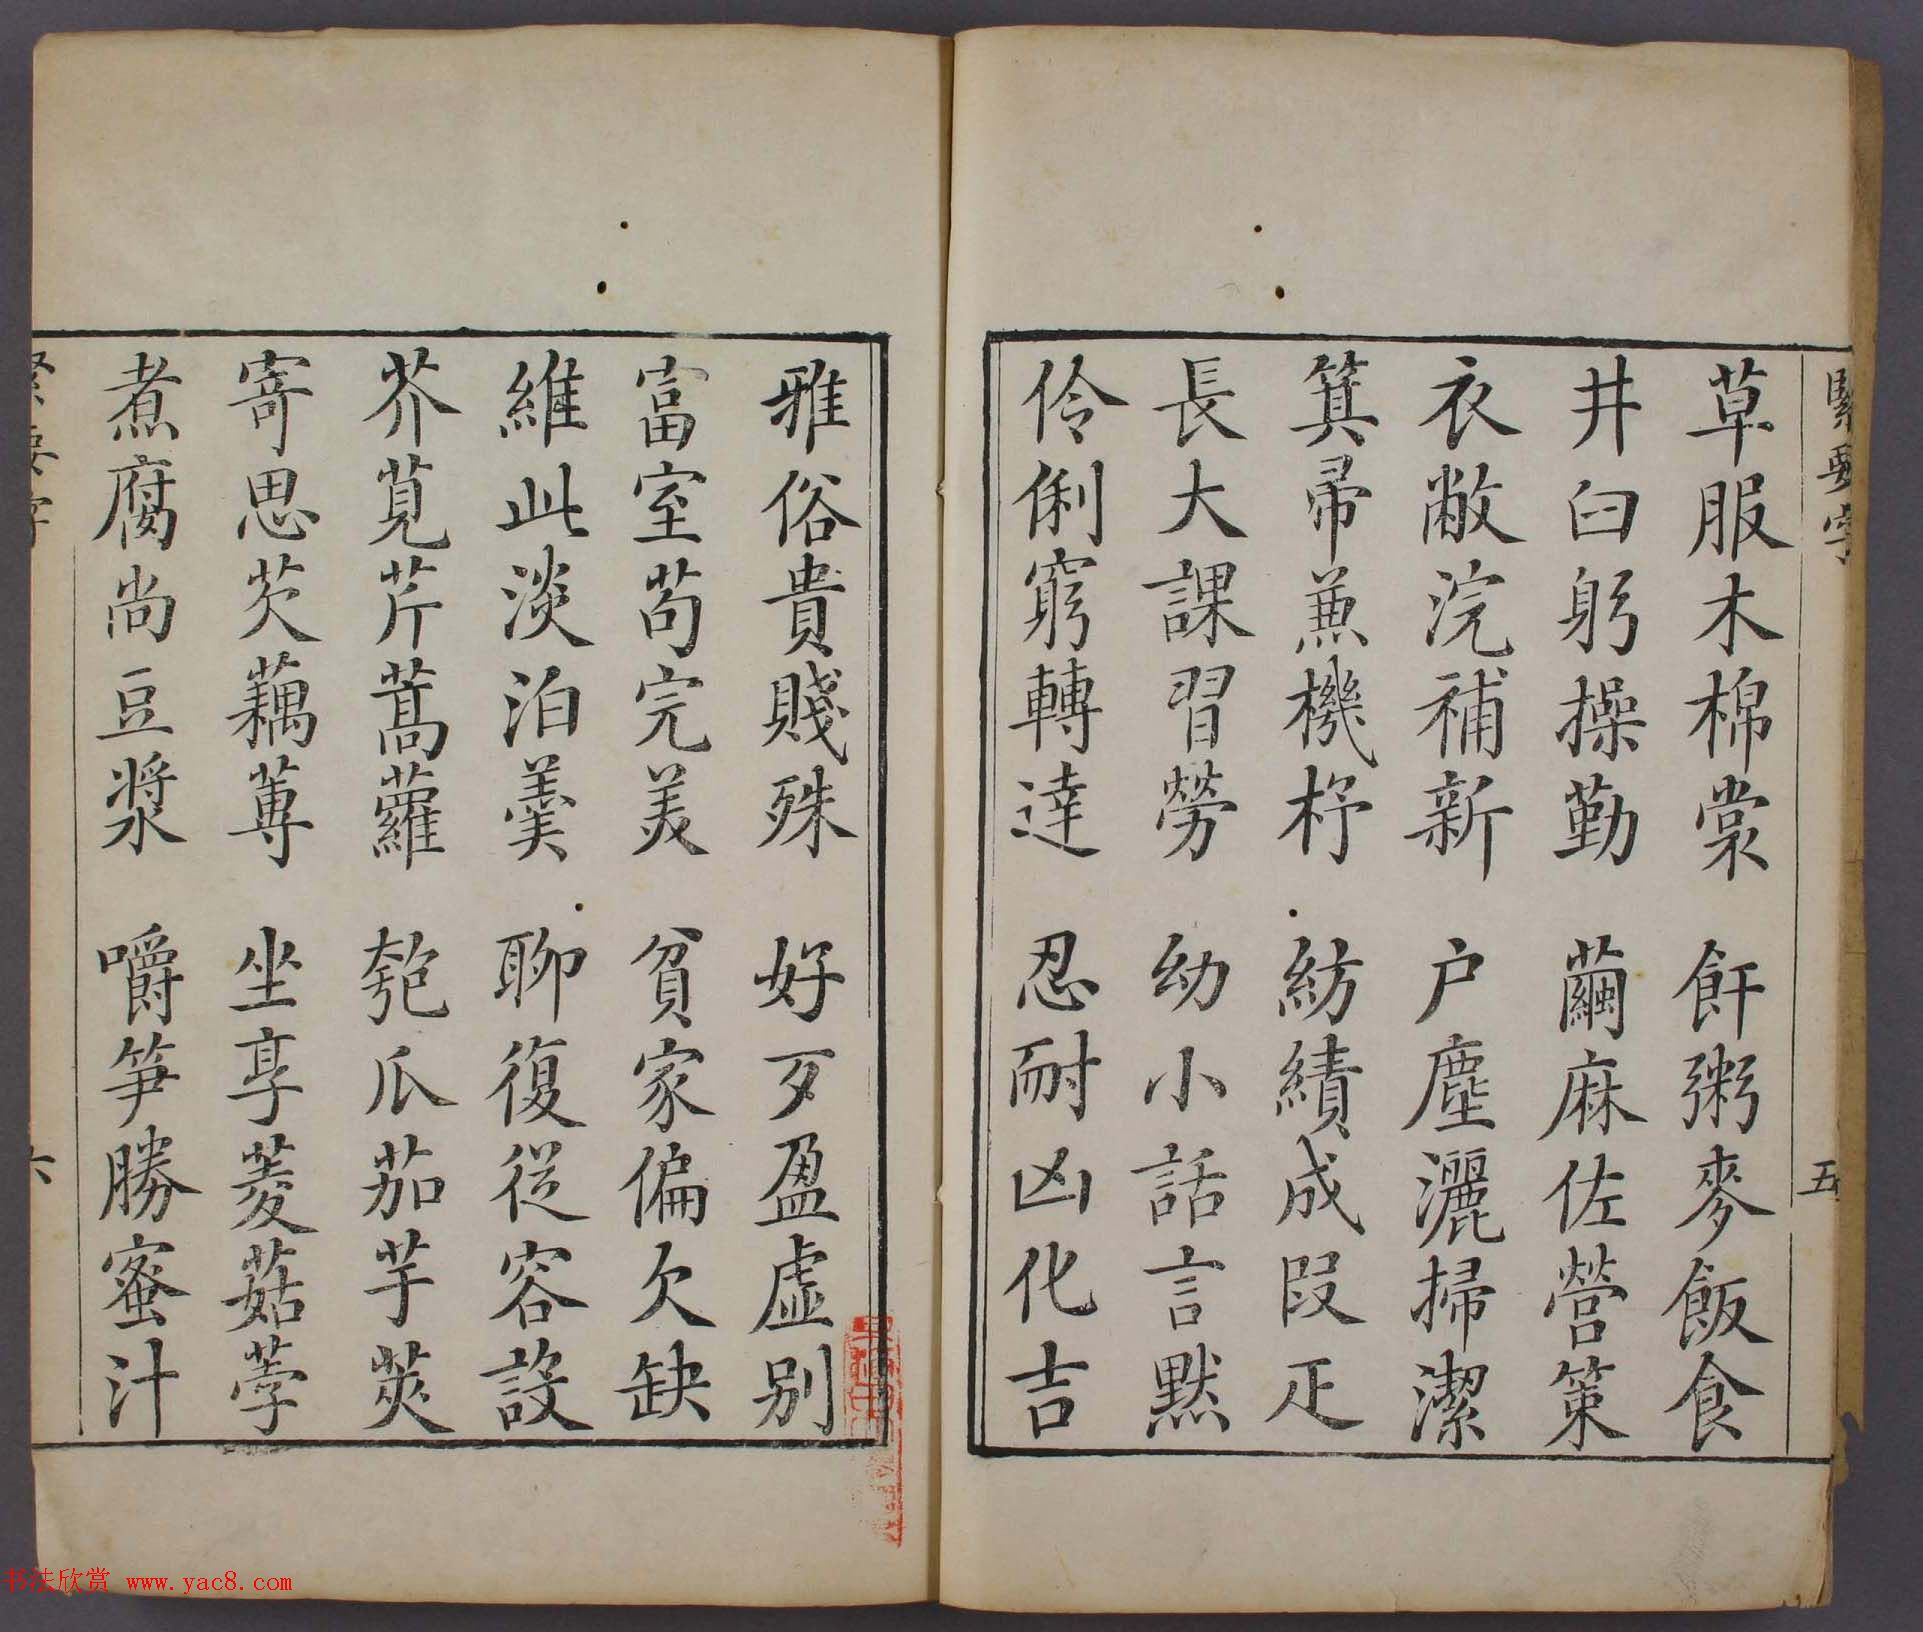 緊要字
五
草服木棉裳 飦粥麥飯食
井臼躬操勤 繭麻佐營策
衣敝浣補新 户塵灑掃潔
箕帚蒸機杼 紡績成段疋
長大課習勞 幼小話言默
伶俐窮轉達 忍耐凶化吉
雅俗貴賤殊 好歹盈虛别
富室苟完美 貧家偏欠缺
維此淡泊羹 聊復從容設
芥莧芹蒿蘿 匏瓜茄芋莢
寄思芡藕蓴 坐享菱菇荸
煮腐尚豆漿 嚼笋勝蜜汁
緊要字
六
书法欣赏 www.yac8.com